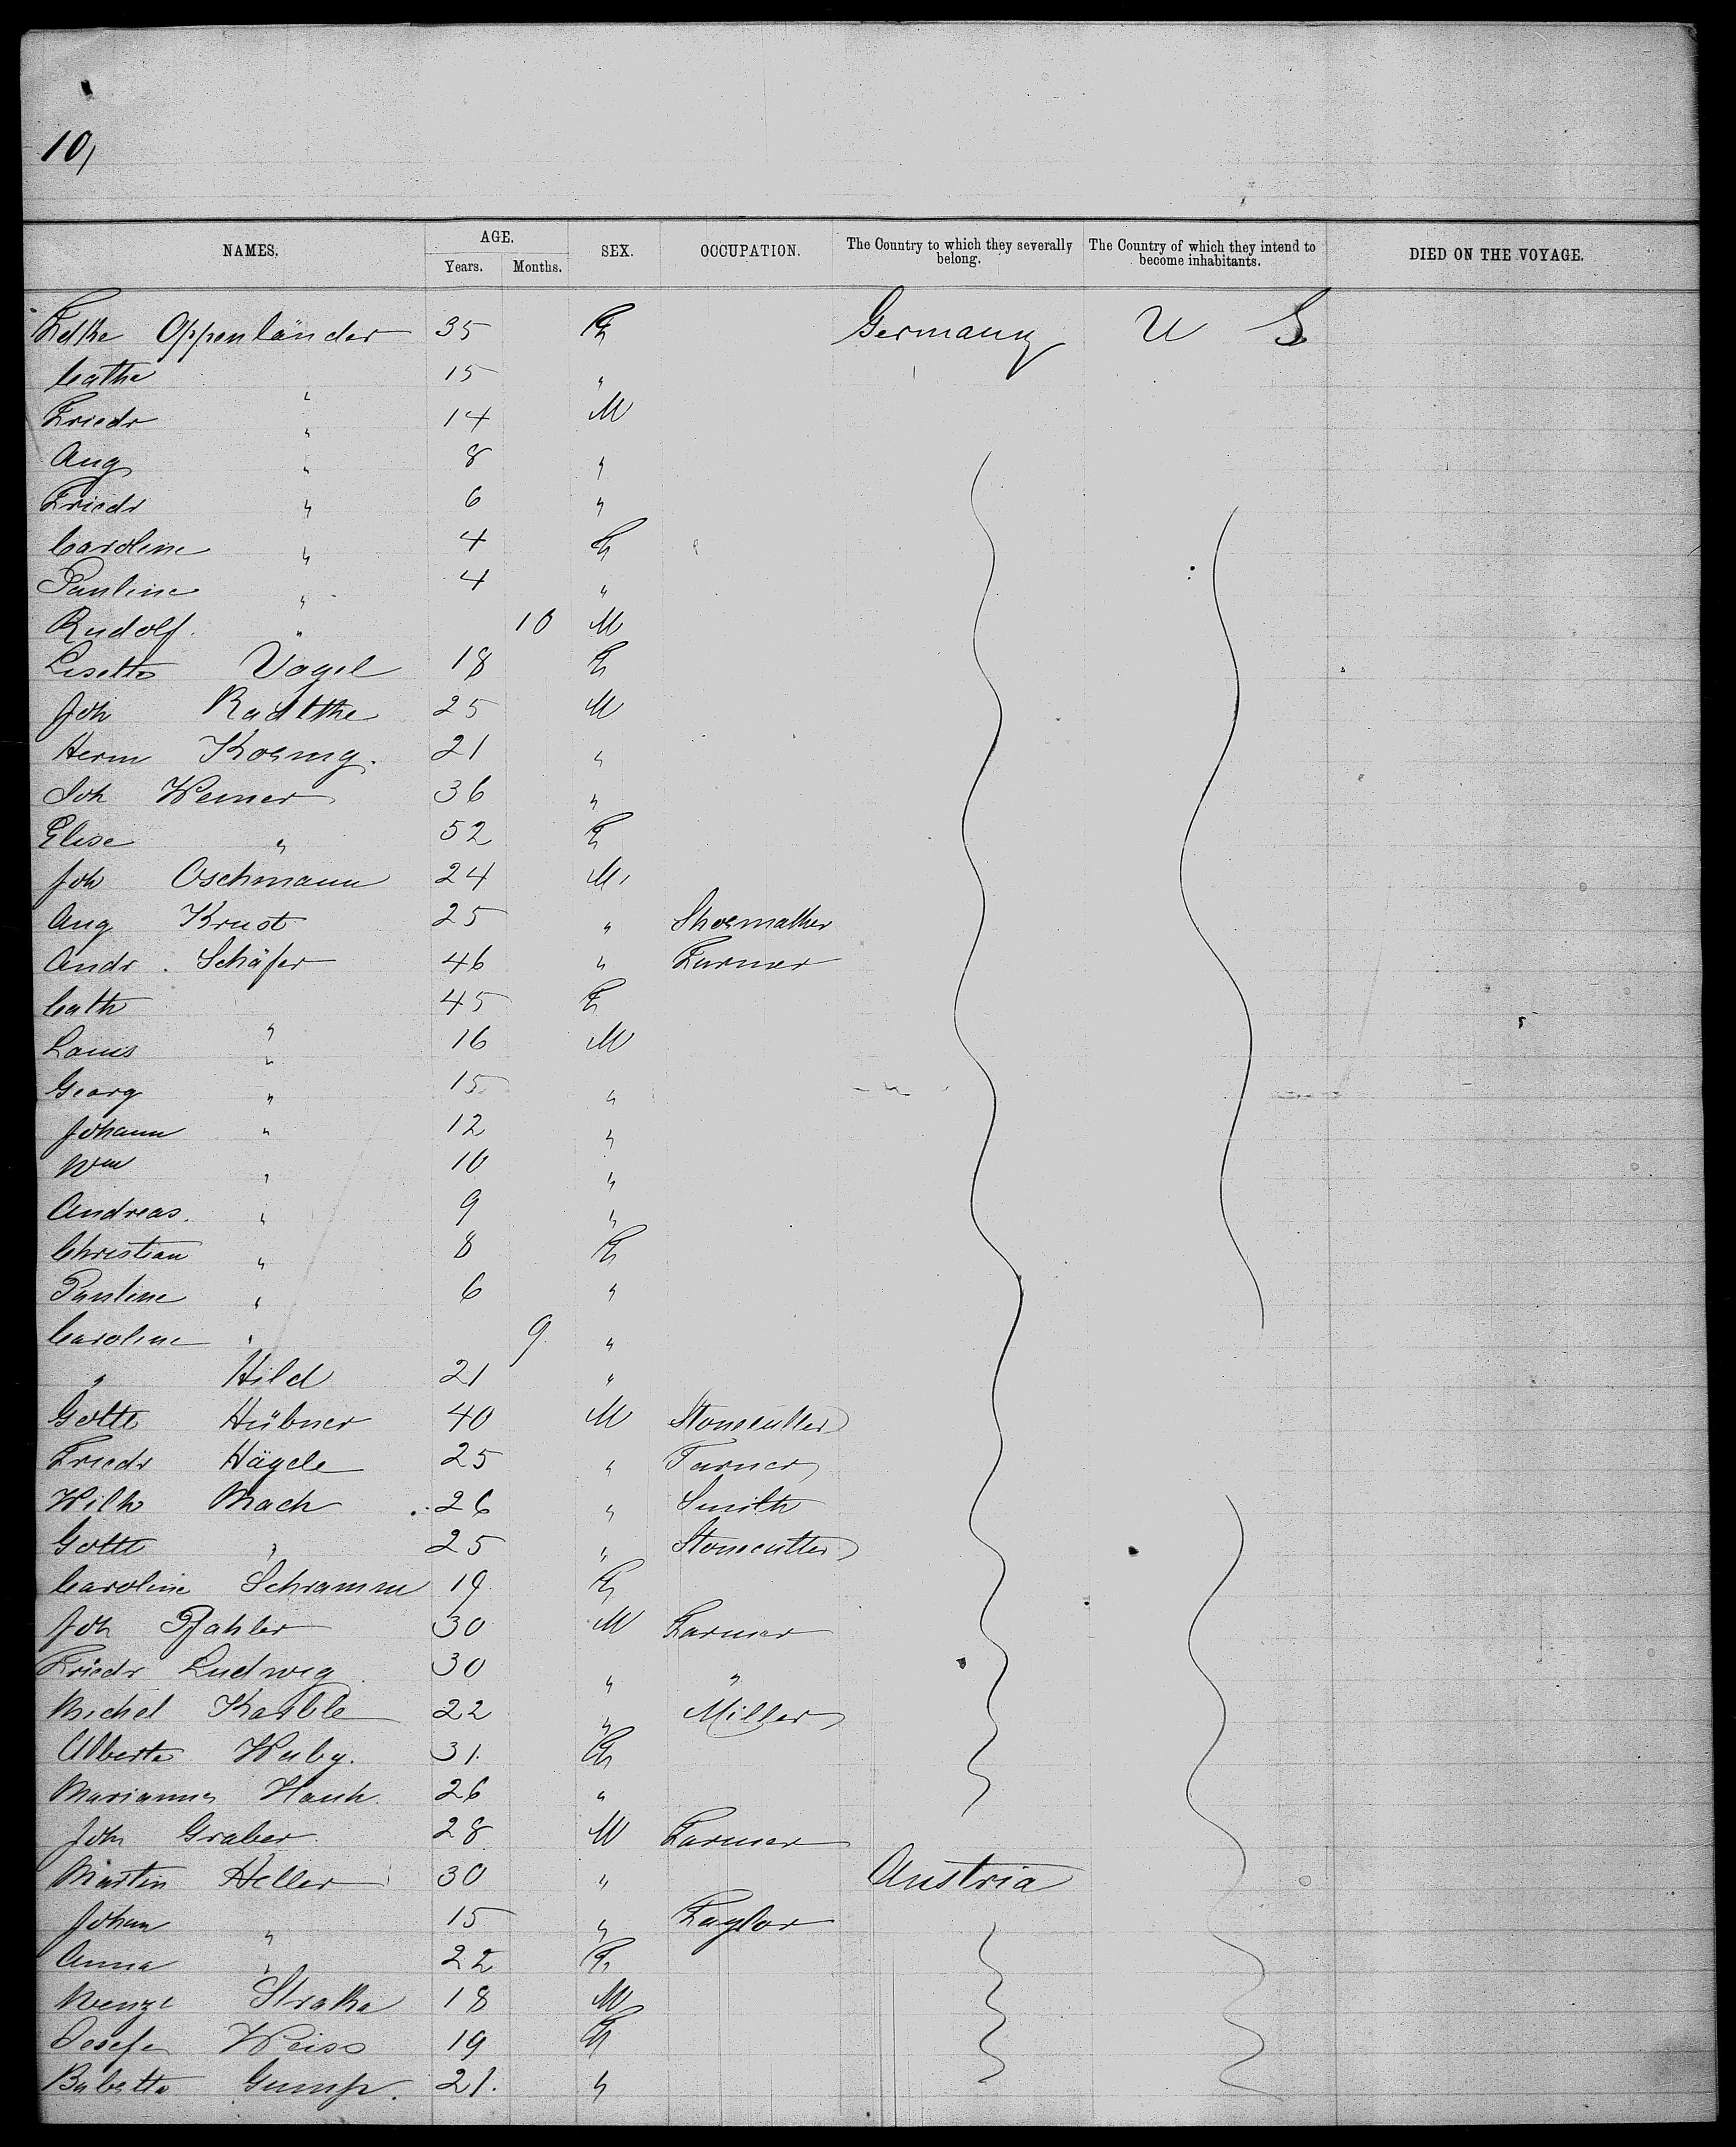 10,
NAMES. AGE. SEX. OCCUPATION. The Country to which they severally belong. The Country of which they intend to become inhabitants. DIED ON THE VOYAGE.
Years. Months.
Oppenländer 35 F Germany U S
Cathe " 15 "
Friedr " 14 M
Aug " 8 "
Friedr " 6 "
Caroline " 4 F
Pauline " 4 "
Rudolf. " 10 M
Lisette Vogel 18 F
Joh Radtke 25 M
Herm Koenig. 21 "
Joh Werner 36 "
Elise " 52 F
Joh Oschmann 24 M
Aug Krust 25 " Shoemaker
Andr. Schäfer 46 " Farmer
Cath " 45 F
Louis " 16 M
Georg " 15 "
Johann " 12 "
Wm " 10 "
Andreas. " 9 "
Christian " 8 F
Pauline " 6 "
Caroline " 9 "
" Hild 21 "
Gottl Hübner 40 M Stonecutter
Friedr Hägele 25 " Farmer
Wilh Mach 26 " Smith
Gottl " 25 " Stonecutter
Caroline Schramm 19 F
Joh Pfahler 30 M Farmer
Friedr Ludwig 30 " "
Michel 22 " Miller
Alberte 31. F
Marianne Hauk. 26 "
Joh Graber 28 M Farmer
Martin Heller 30 " Austria
Johan " 15 " Taylor
Anna " 22 F
Wenzl Straka 18 M
Josefa Weiss 19 F
Babette Gumpr. 21. "